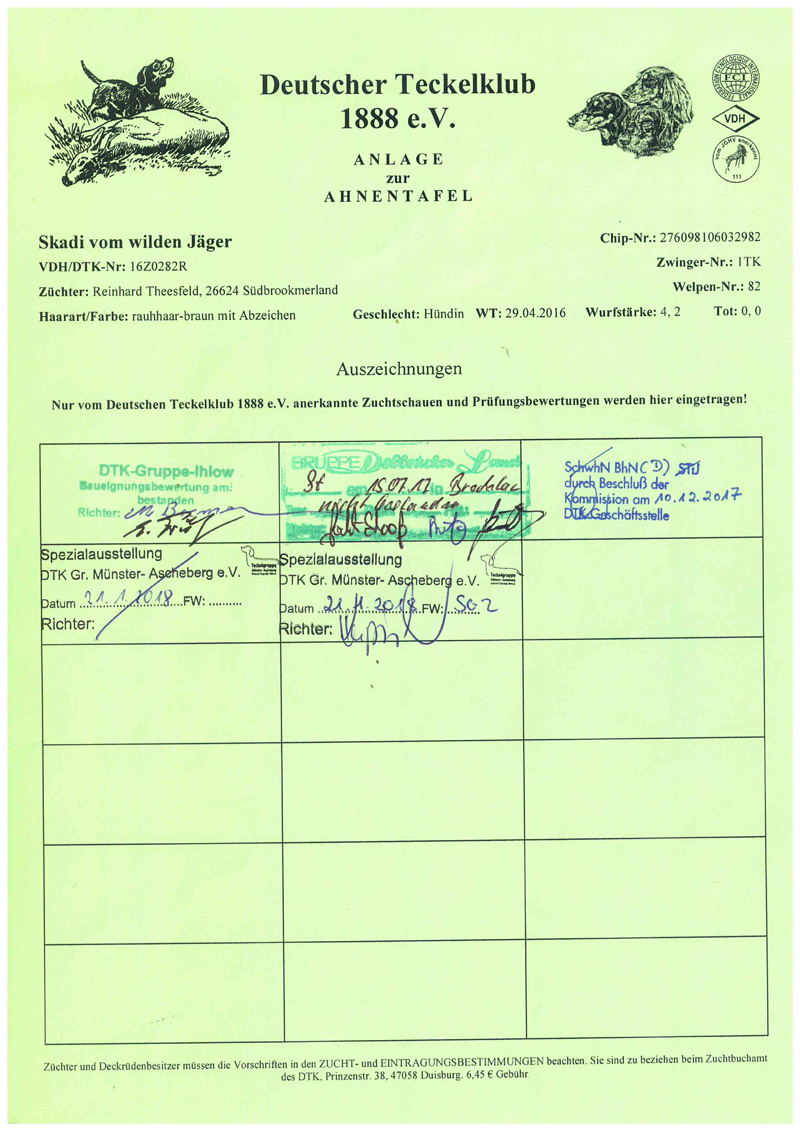 Deutscher Teckelklub
1888 e.V.
ANLAGE
zur
AHNENTAFEL
FCI
VDH
vom JGHV anerkannt
111
Skadi vom wilden Jäger
VDH/DTK-Nr: 16Z0282R
Züchter: Reinhard Theesfeld, 26624 Südbrookmerland
Haarart/Farbe: rauhhaar-braun mit Abzeichen
Geschlecht: Hündin WT: 29.04.2016 Wurfstärke: 4, 2 Tot: 0, 0
Chip-Nr.: 276098106032982
Zwinger-Nr.: 1TK
Welpen-Nr.: 82
Auszeichnungen
Nur vom Deutschen Teckelklub 1888 e.V. anerkannte Zuchtschauen und Prüfungsbewertungen werden hier eingetragen!
DTK-Gruppe-Ihlow
Baueignungsbewertung am:
bestanden
Richter:
GRUPPE
St am 15.07.17 in
nicht
SchwhN BhN(D) StJ
durch Beschluß der
Kommission am 10.12.2017
DTK-Geschäftsstelle
Spezialausstellung
DTK Gr. Münster- Ascheberg e.V.
Datum 21.1.2018 FW: ..........
Richter:
Teckelgruppe
Spezialausstellung
DTK Gr. Münster- Ascheberg e.V.
Datum 21.11.2018 FW: SG 2
Richter:
Teckelgruppe
Züchter und Deckrüdenbesitzer müssen die Vorschriften in den ZUCHT- und EINTRAGUNGSBESTIMMUNGEN beachten. Sie sind zu beziehen beim Zuchtbuchamt
des DTK, Prinzenstr. 38, 47058 Duisburg. 6,45 € Gebühr